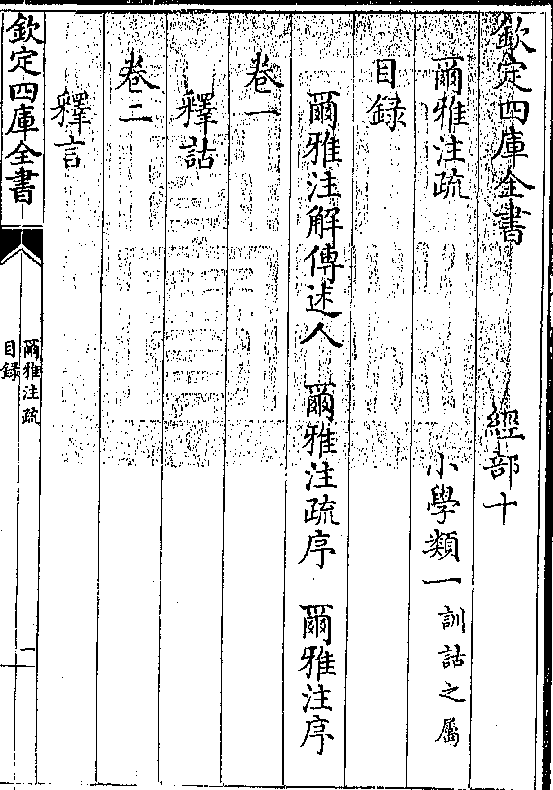 欽定四庫全書 經部十
爾雅注疏 小學類一 訓詁之屬
目錄
爾雅注解傳述人 爾雅注疏序 爾雅注序
卷一
釋詁
卷二
釋言
欽定四庫全書
爾雅注疏
目錄
一